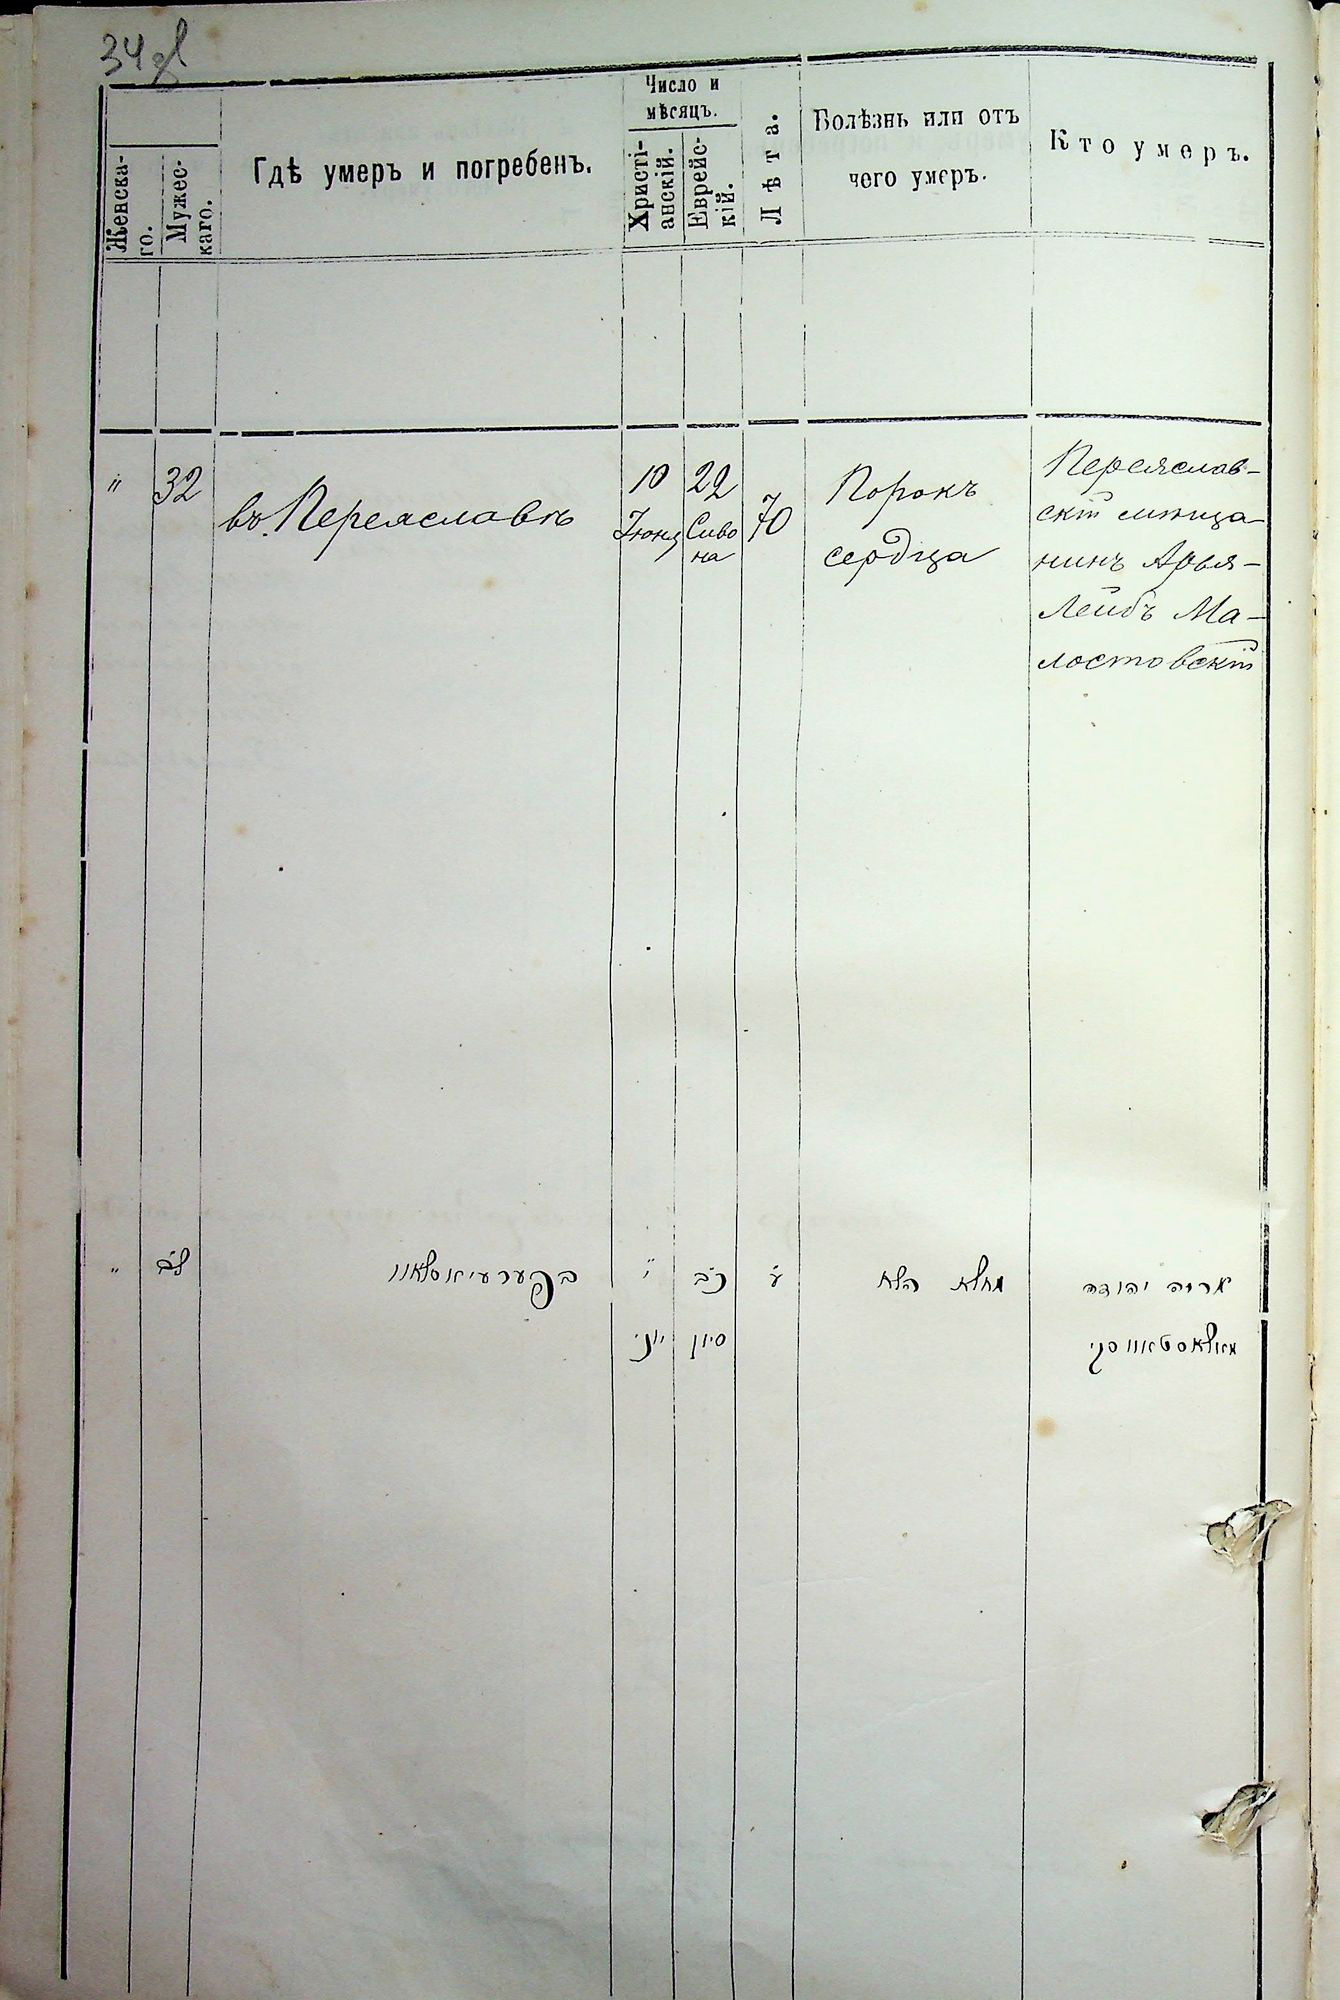 34 об
Число и
мѣсяцъ.
Женска-
го.
Мужес-
каго.
Гдѣ умеръ и погребенъ.
Христі-
анскій.
Еврейс-
кій.
Лѣта.
Болѣзнь или отъ
чего умеръ.
Кто умеръ.
" 32 въ Переяславѣ
10
Іюня
22
Сиво
на
70
Порокъ
сердца
Переяслав-
скій мѣща-
нинъ Арья-
Лейбъ Ма-
лостовскій
" ל״ב
בפערעיאסלאוו
י׳
יוני
כ״ב
סיון
ע׳
מחלת הלב
אריה יהודה
מאלאסטאווסקי